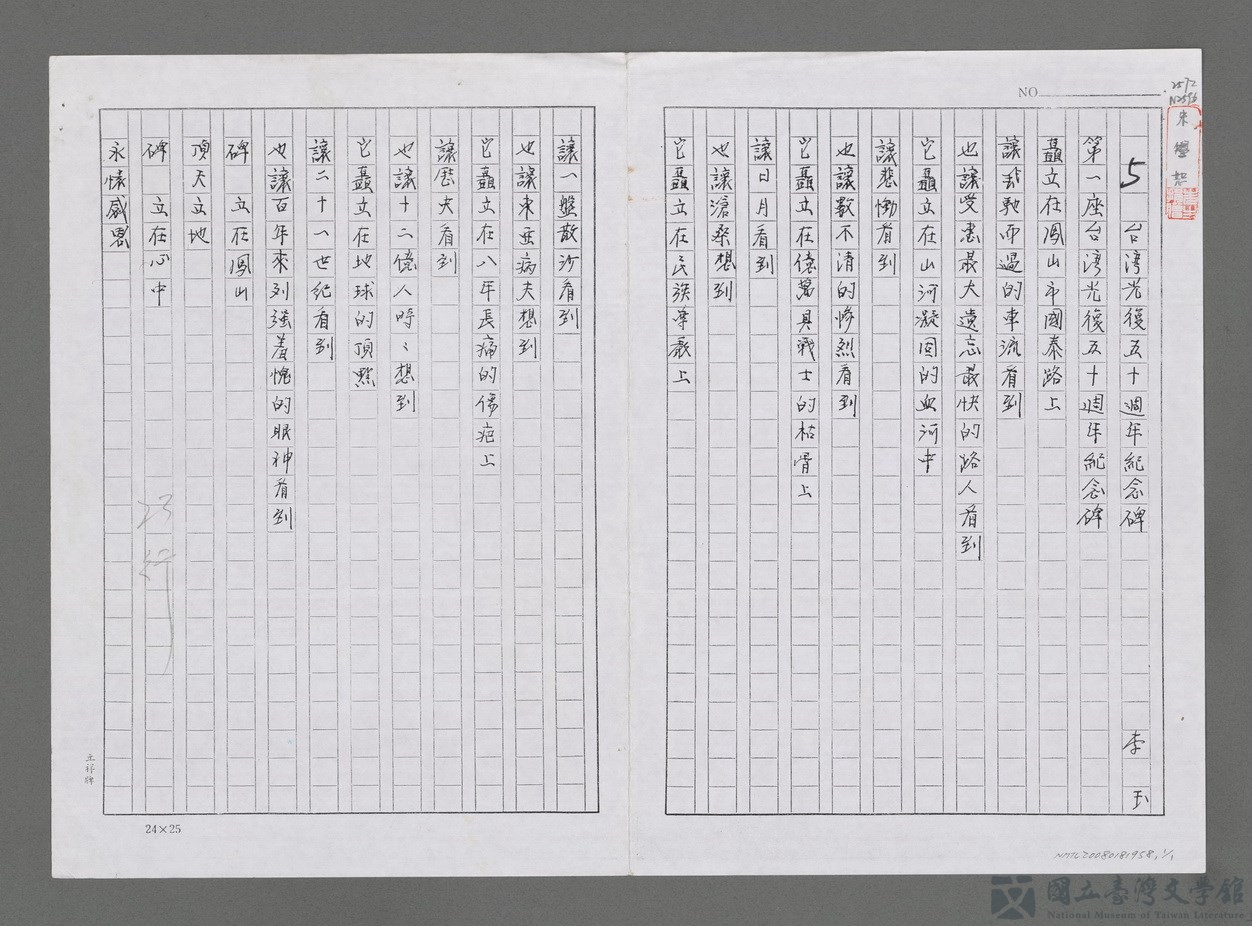 NO
2572
5 台湾光復五十週年紀念碑 李玉
第一座台湾光復五十週年紀念碑
矗立在鳳山市國泰路上
讓飛馳而過的車流看到
也讓受惠最大遺忘最快的路人看到
它矗立在山河凝固的血河中
讓悲慟看到
也讓數不清的慘烈看到
它矗立在億萬具戰士的枯骨上
讓日月看到
也讓滄桑想到
它矗立在民族尊嚴上
讓一盤散沙看到
也讓東亜病夫想到
它矗立在八年長痛的傷疤上
讓歷史看到
也讓十二億人時〻想到
它矗立在地球的頂點
讓二十一世紀看到
也讓百年來列強羞愧的眼神看到
碑 立在鳳山
頂天立地
碑 立在心中
永懷感恩
24×25
NMTL20080181958,1/1
國立臺灣文學館
National Museum of Taiwan Literature